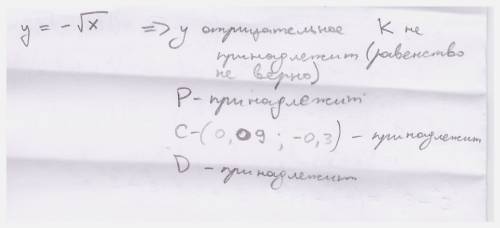 y = -√x => y отрицательное К не
принадлежит (равенство
не верно)
P - принадлежит
C - (0,09 ; -0,3) - принадлежит
D - принадлежит